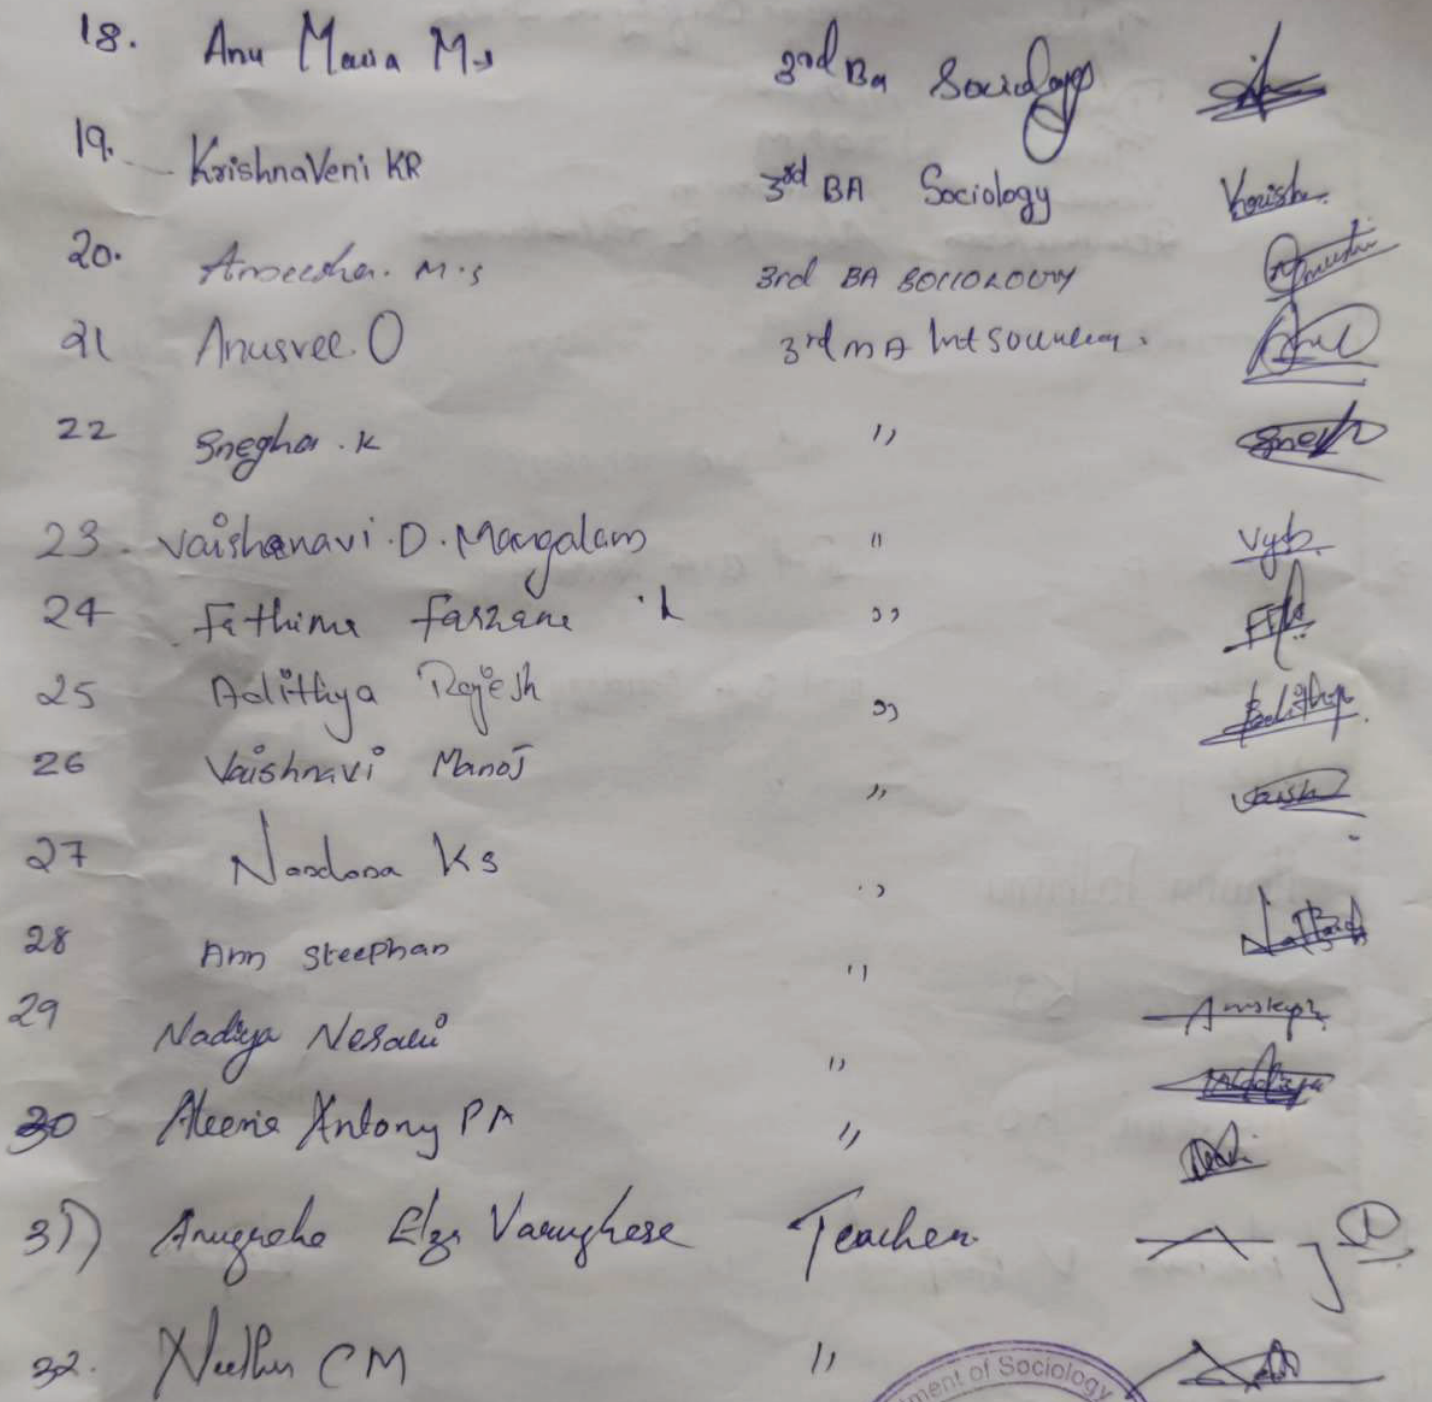 18. Anu Maria M.s 3rd Ba Sociology
19. KrishnaVeni KR 3rd BA Sociology Krish
20. Aneesha. M.s 3rd BA SOCIOLOGY
21 Anusree. O 3rd MA Int Sociology.
22 Snegha . K "
23. Vaishanavi . D . Mangalam "
24 Fathima Farzana . K "
25 Adithya Rajesh " Adithya
26 Vaishnavi Manoj " Vaish
27 Nandana KS "
28 Ann Steephan "
29 Nadiya "
30 Aleena Antony PA "
31) Anugraha Elza Varughese Teacher
32. Neethu CM "
ment of Sociology